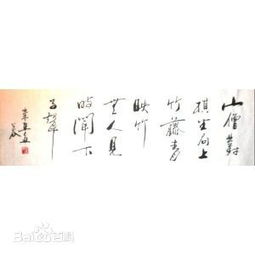 山僧對
棋坐局上
竹蔭清
映竹
無人見
時聞下
子聲
Bai百科